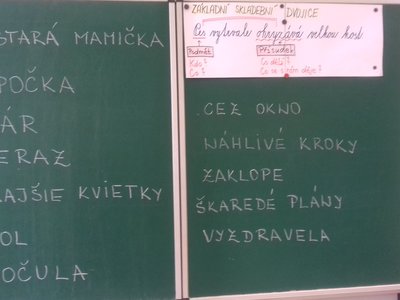 STARÁ MAMIČKA
POČKA
ÁR
ERAZ
AJŠIE KVIETKY
OL
OČULA
ZÁKLADNÍ SKLADEBNÍ DVOJICE
Pes vytrvale ohryzává velkou kost
Podmět Přísudek
Kdo? Co dělá?
Co? Co se s ním děje?
CEZ OKNO
NÁHLIVÉ KROKY
ZAKLOPE
ŠKAREDÉ PLÁNY
VYZDRAVELA